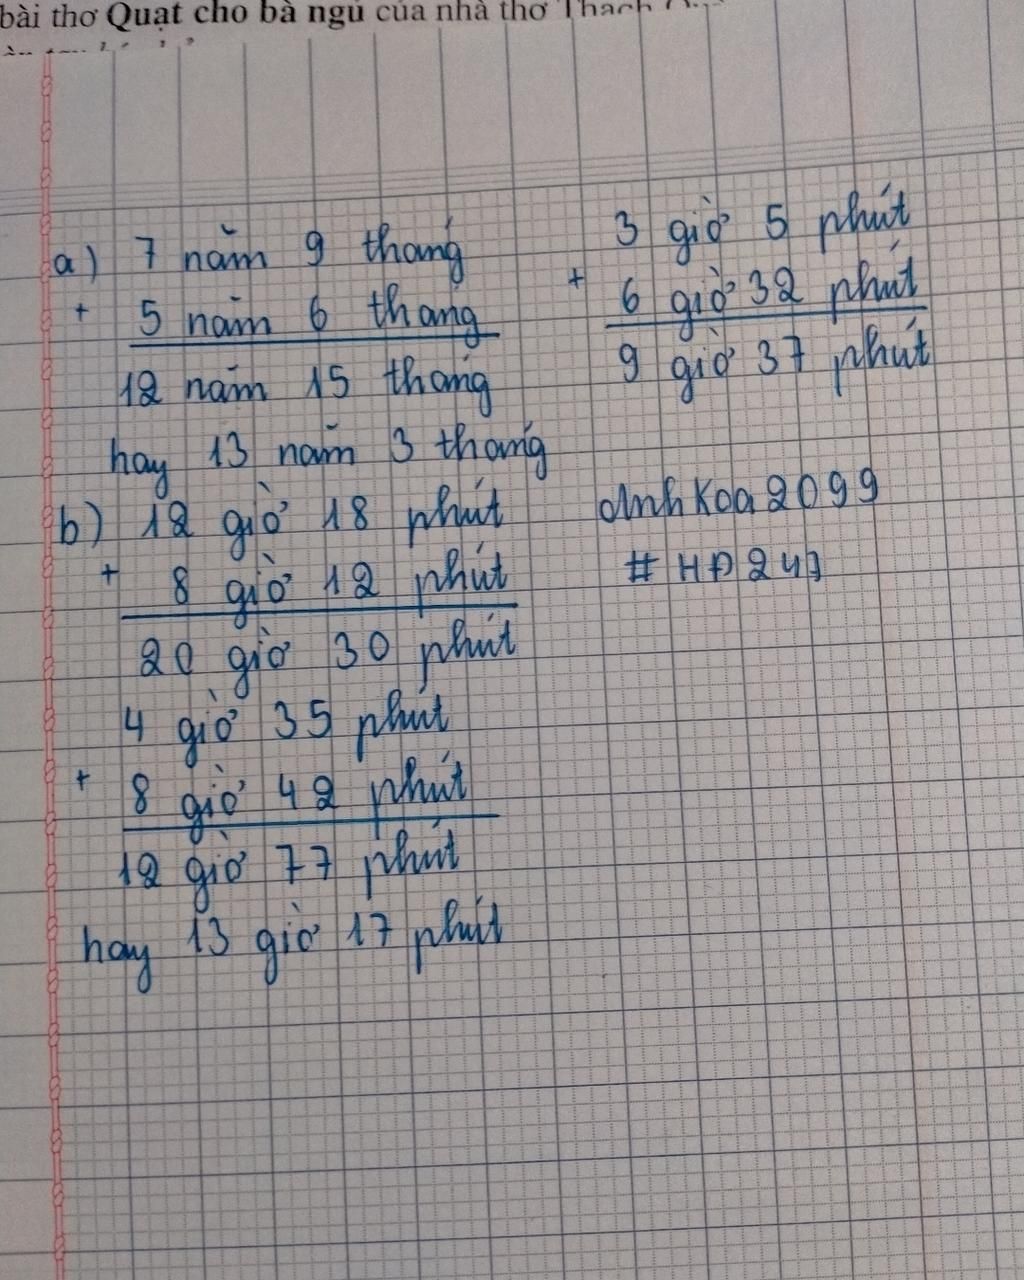 bài thơ Quạt cho bà ngủ của nhà thơ Thạch
a) 7 năm 9 tháng
+ 5 năm 6 tháng
12 năm 15 tháng
hay 13 năm 3 tháng
3 giờ 5 phút
+ 6 giờ 32 phút
9 giờ 37 phút
b) 12 giờ 18 phút
+ 8 giờ 12 phút
20 giờ 30 phút
4 giờ 35 phút
+ 8 giờ 42 phút
12 giờ 77 phút
hay 13 giờ 17 phút
anhKoa2099
#HĐ247